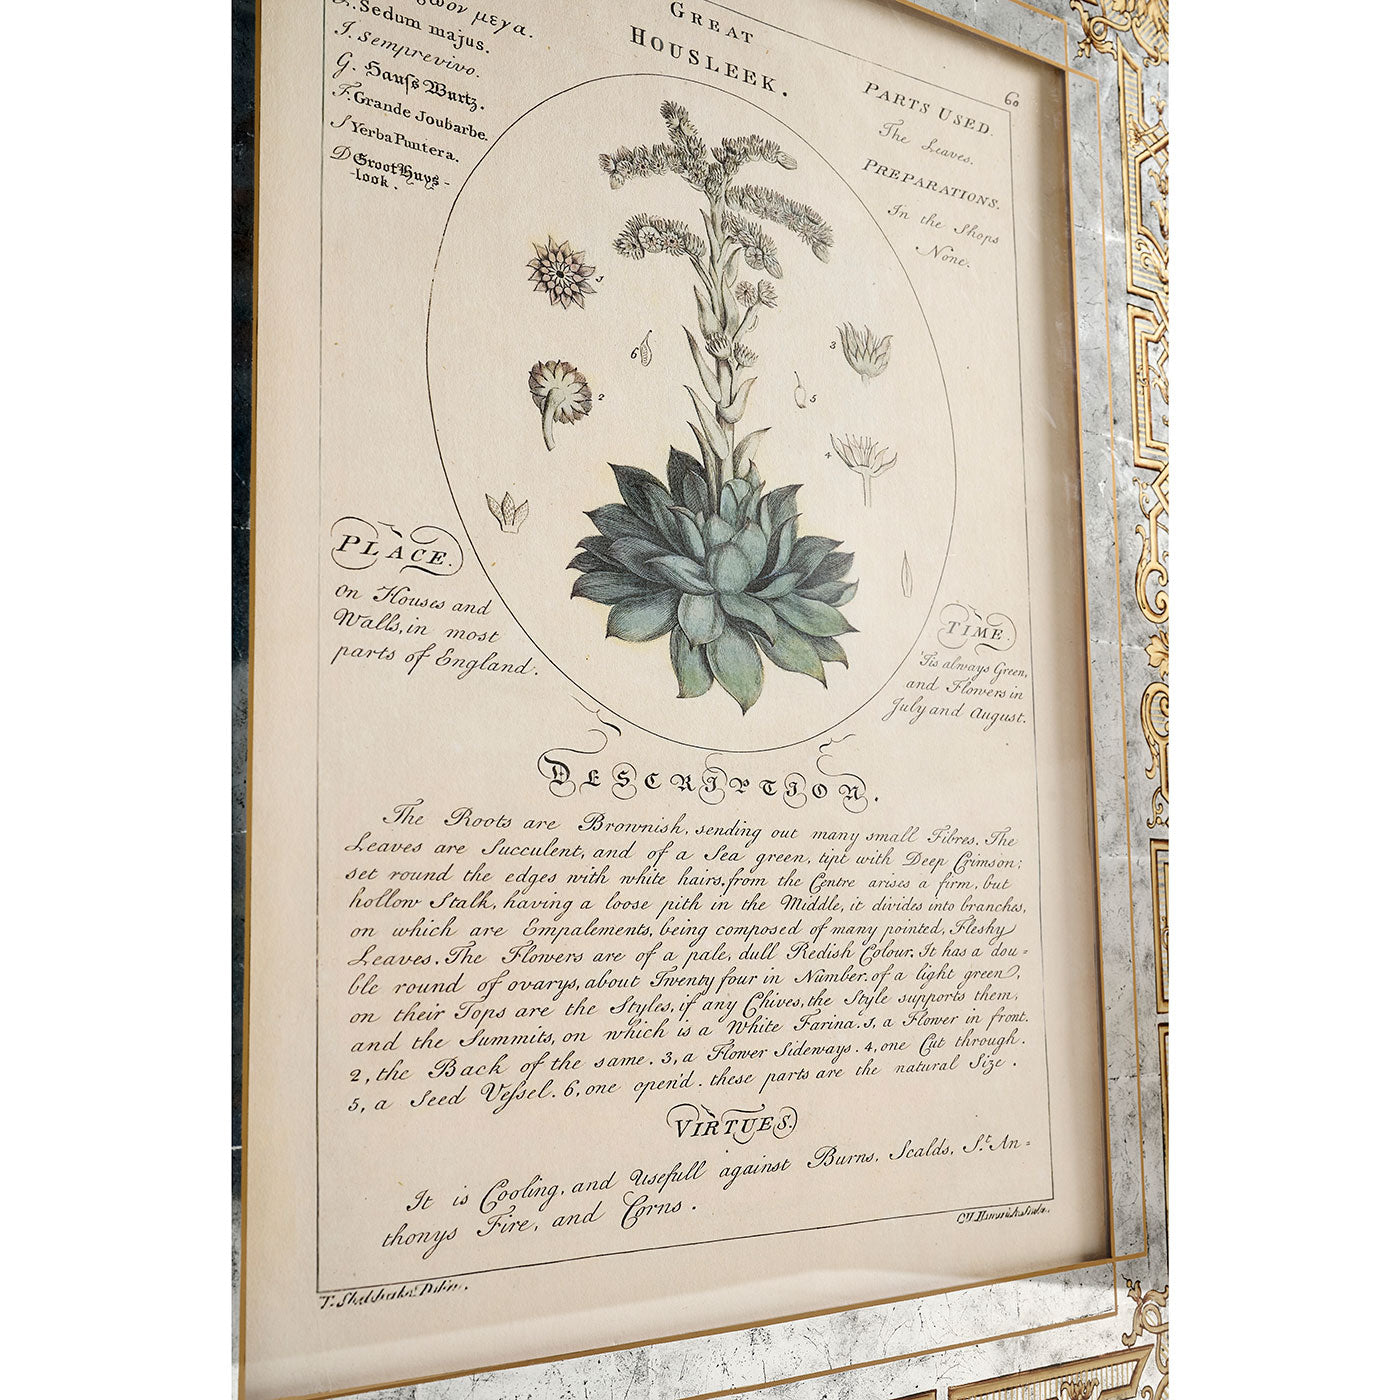 μεγα.
Sedum majus.
I. Semprevivo.
G. Hauſs Wurtz.
F. Grande Joubarbe.
S Yerba Puntera.
D Groot Huys-
-look.
GREAT
HOUSLEEK.
60
PARTS USED.
The Leaves.
PREPARATIONS.
In the Shops
None.
1
2
3
4
5
6
PLACE.
on Houses and
Walls, in most
parts of England.
TIME.
'Tis always Green,
and Flowers in
July and August.
DESCRIPTION.
The Roots are Brownish, sending out many small Fibres. The
Leaves are Succulent, and of a Sea green, tipt with Deep Crimson;
set round the edges with white hairs, from the Centre arises a firm, but
hollow Stalk, having a loose pith in the Middle, it divides into branches,
on which are Empalements, being composed of many pointed, Fleshy
Leaves. The Flowers are of a pale, dull Redish Colour. It has a dou-
ble round of ovarys, about Twenty four in Number. of a light green,
on their Tops are the Styles, if any Chives, the Style supports them,
and the Summits, on which is a White Farina. 1, a Flower in front.
2, the Back of the same. 3, a Flower Sideways. 4, one Cut through.
5, a Seed Veſsel. 6, one open'd. these parts are the natural Size.
VIRTUES.
It is Cooling, and Usefull against Burns, Scalds, St. An-
thonys Fire, and Corns.